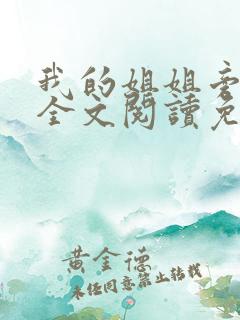 我的姐姐
全文閱讀免
黄金德
未经同意禁止转载